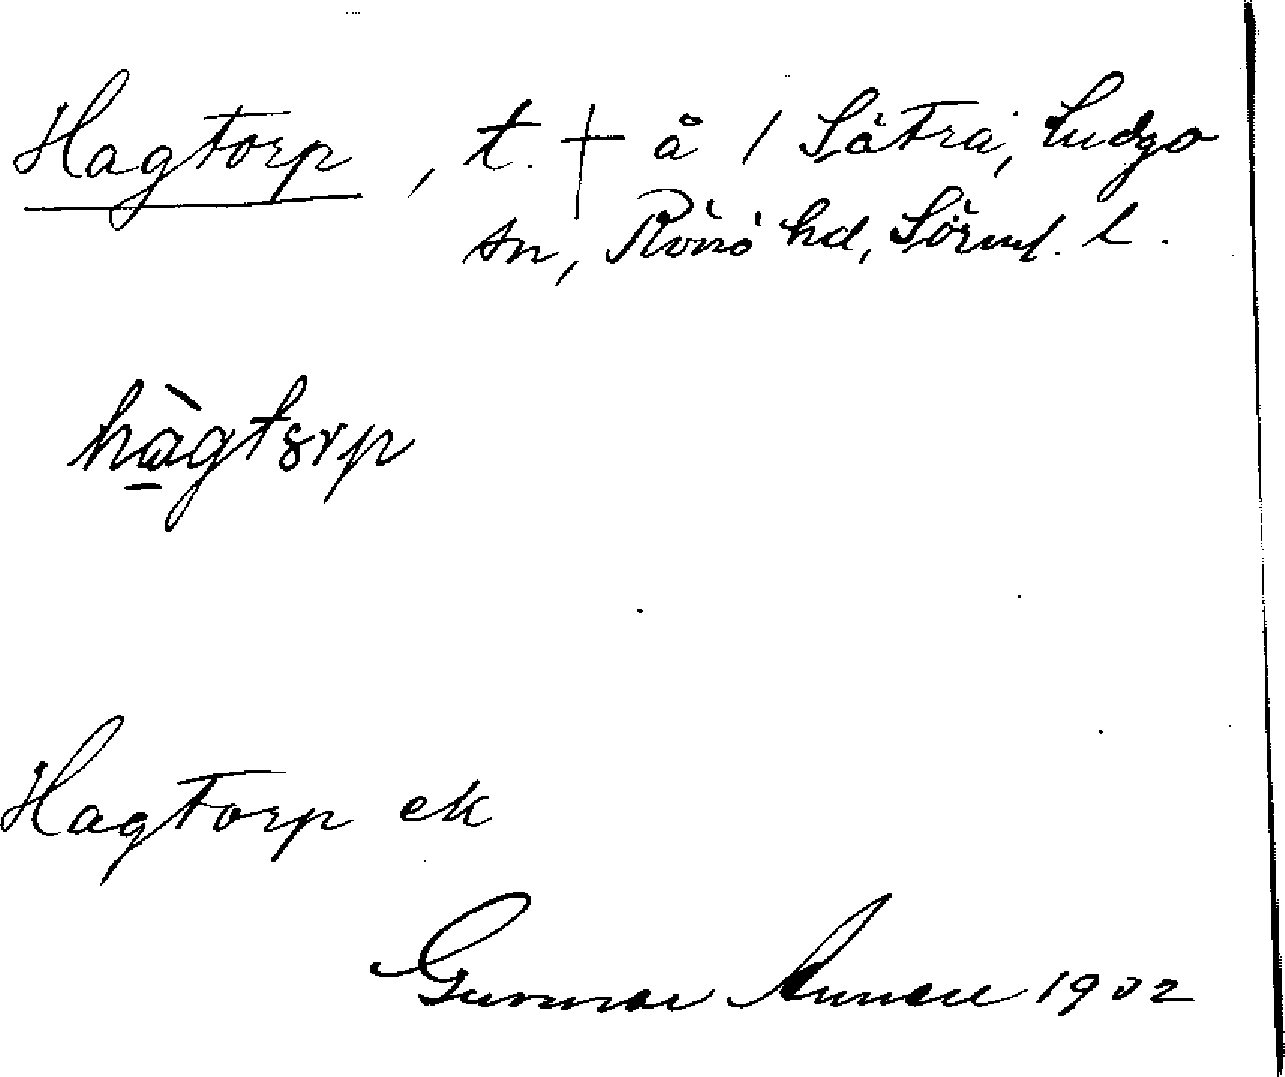 Hagtorp, t. † å 1 Sätra, Ludgo
sn, Rönö hd, Sörml. l.
hàgtorp
Hagtorp ek
Gunnar 1902